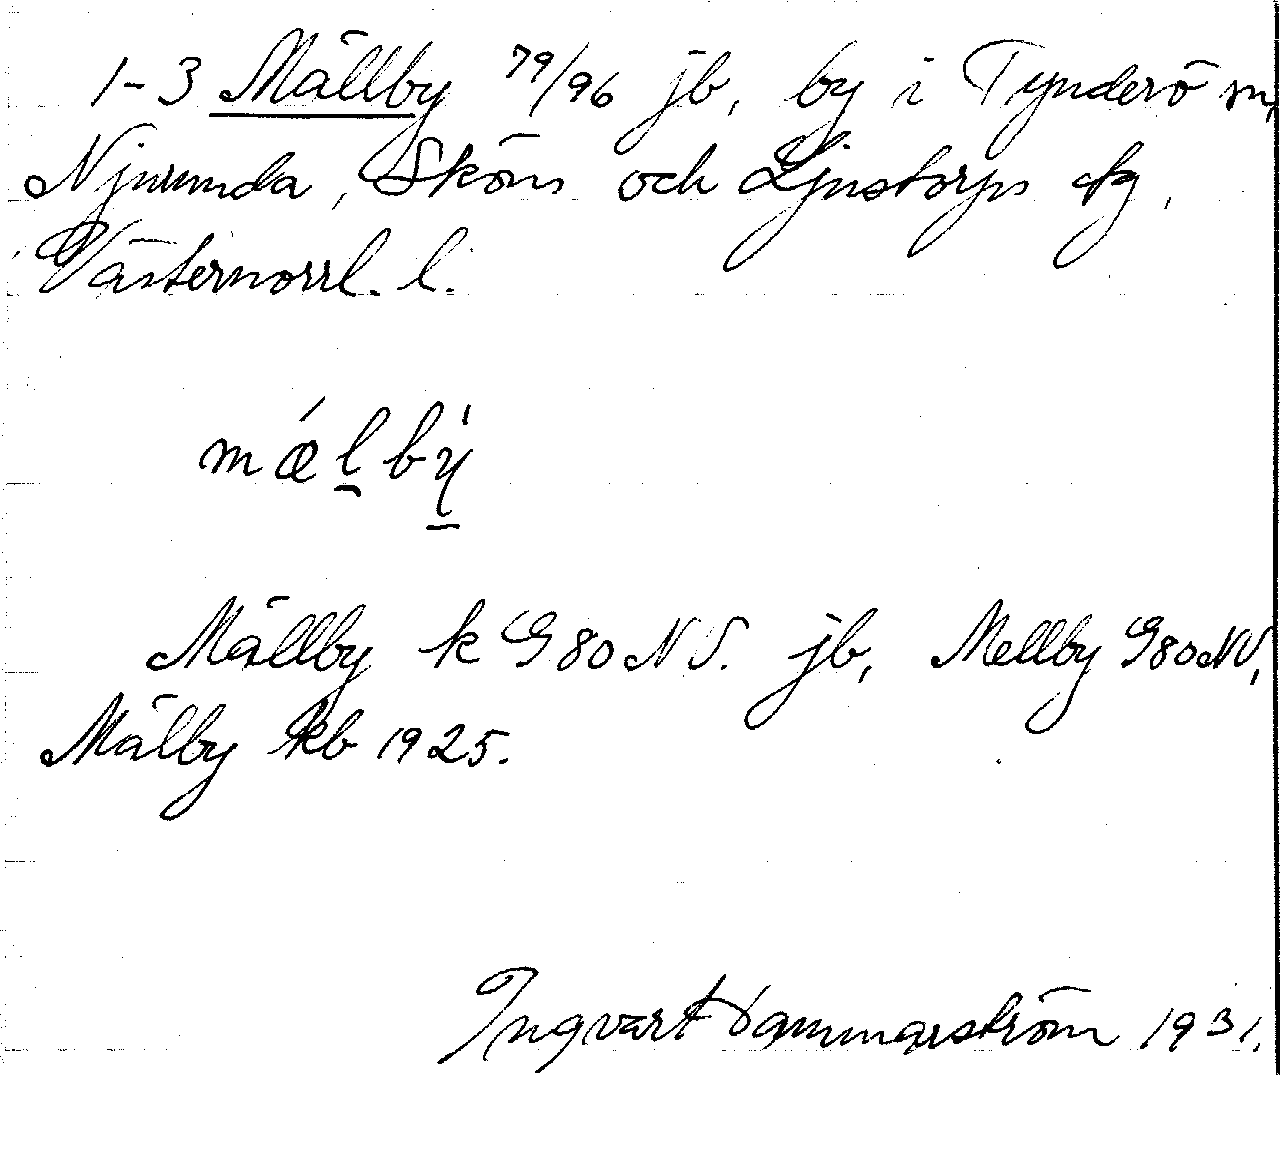 1-3 Mällby 79/96 jb, by i Tynderö sn,
Njurunda, Sköns och Ljustorps tg,
Västernorrl. l.
mælby
Mällby k G80NV. jb, Mellby G80NV,
Mälby kb 1925.
Ingvart Hammarström 1931.